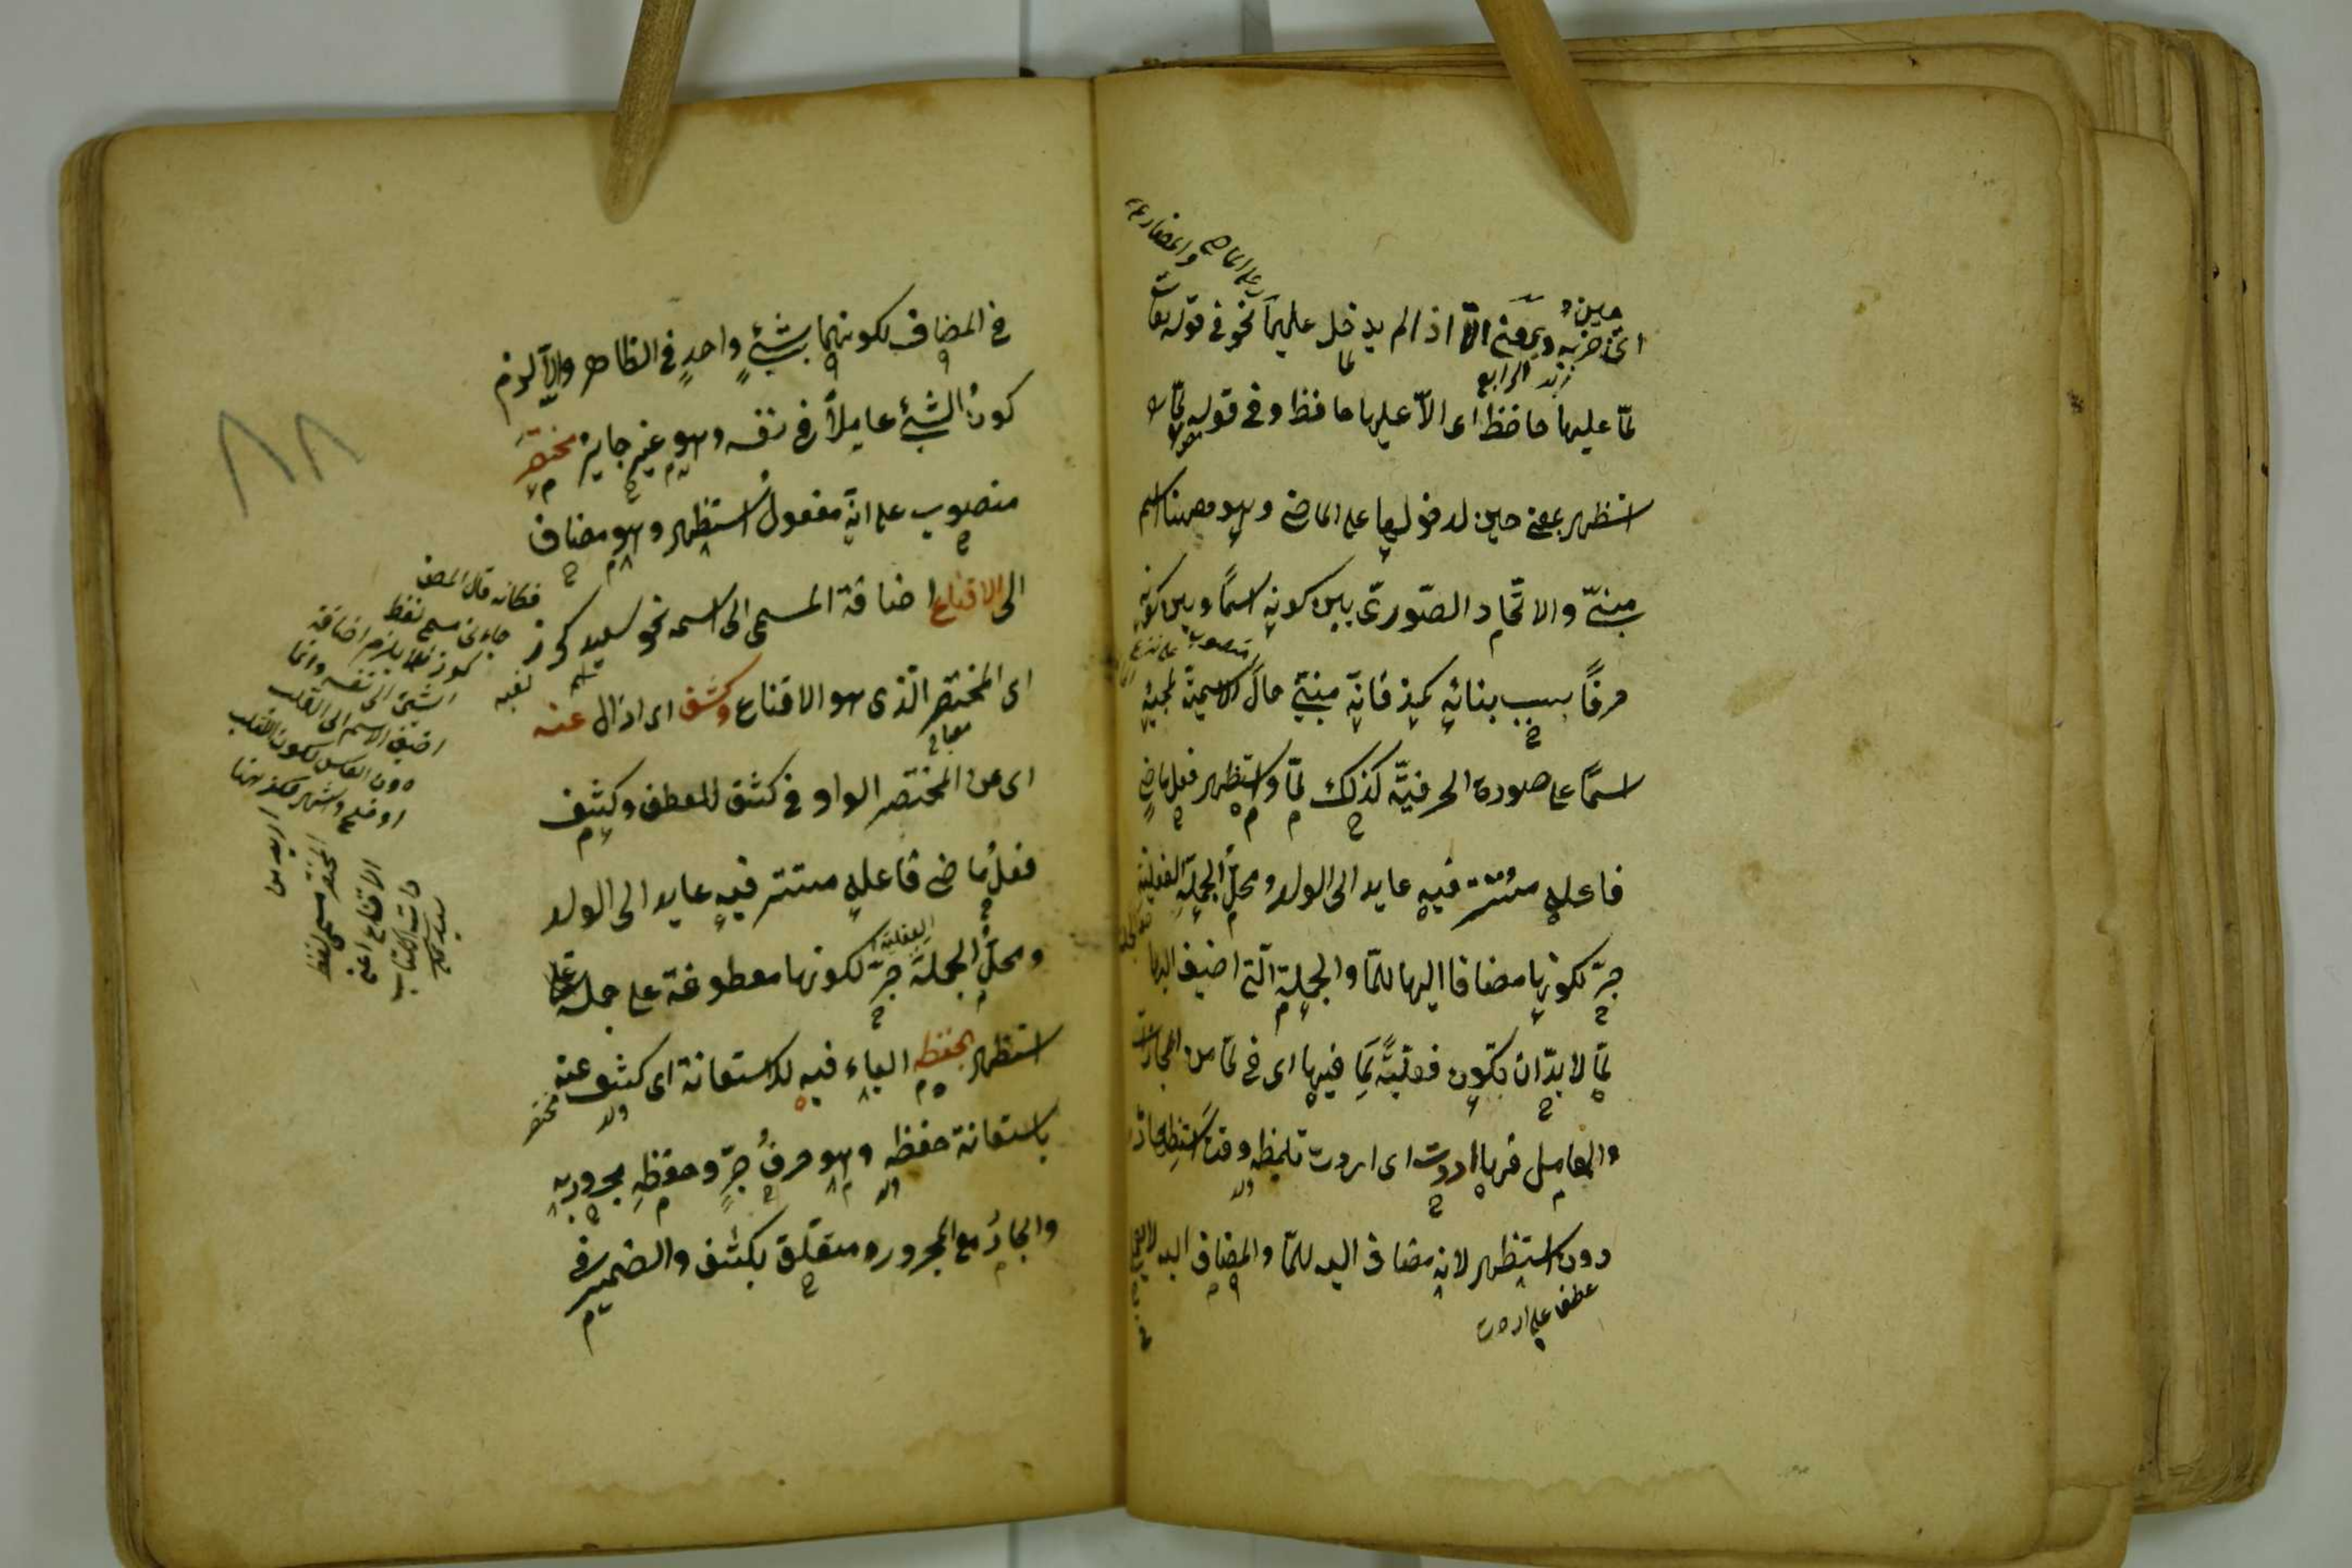 اى ضربه وبمعنى الّا اذا لم يدخل عليهما نحو فى قوله تعا
لمّا عليها حافظ اى الّا عليها حافظ وفى قوله لمّا
استظهر بمعنى حين لدخولها على الماضى وهو ههنا اسم
مبنىّ والاتّحاد الصّورىّ بين كونه اسمًا وبين كونه
حرفًا سبب بنائه كمذ فانّه مبنىّ حال الاسميّة لمجيئه
اسمًا على صورة الحرفيّة كذلك لمّا واستظهر فعل ماض
فاعله مستتر فيه عايد الى الولد ومحلّ الجملة الفعليّة
جرّ لكونها مضافا اليها للمّا والجملة الّتى اضيف اليها
لمّا لا بدّ ان يكون فعليّة لما فيها اى فى لمّا من المجازات
والعامل فيها اردت اى اردت تلميظه وقت استظهاره
دون استظهر لانه مضاف اليه للمّا والمضاف اليه لا يعمل
عطف على اردت
فى المضاف لكونهما بشئ واحد فى الظاهر والّا لزم
كون الشئ عاملًا فى نفسه وهو غير جايز مختصر
منصوب على انّه مفعول استظهر وهو مضاف
الى الاقناع اضافة المسمى الى اسمه نحو سعيد كرز
اى المختصر الّذى هو الاقناع وكشف اى ازال عنه
اى عن المختصر الواو فى كشف للعطف وكشف
فعل ماضى فاعله مستتر فيه عايد الى الولد
ومحلّ الجملة الفعلية جرّ لكونها معطوفة على جملة
استظهر بحفظه الباء فيه للاستعانة اى كشف عنه
باستعانة حفظه وهو حرف جرّ وحفظه مجرور به
والجارّ مع المجرور متعلّق بكشف والضمير فى
فكانه قال المص
جاءنى مسمى لفظ
كرز فلا يلزم اضافة
الشئ الى نفسه وانما
اضيف الاسم الى اللقب
دون العكس لكون اللقب
اوضح واشهر